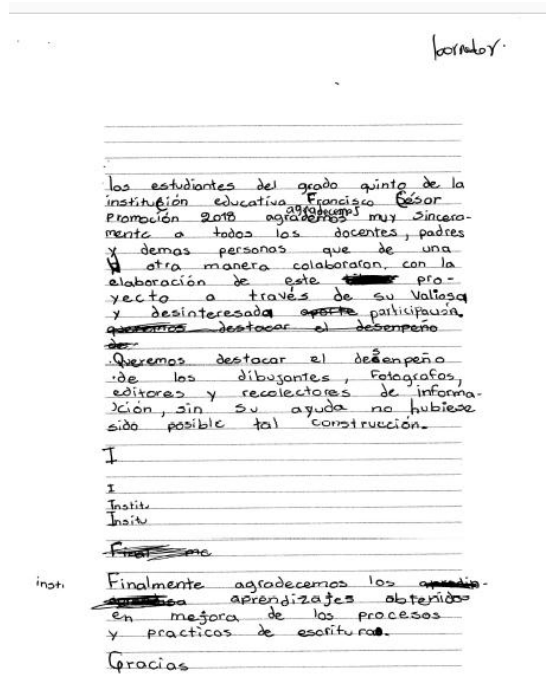 borrador.
los estudiantes del grado quinto de la
institución educativa Francisco César
agradecemos
Promoción 2018 agrademos muy sincera-
mente a todos los docentes, padres
y demas personas que de una
u otra manera colaboraron, con la
elaboración de este pro-
yecto a través de su valiosa
y desinteresada aporte participación.
queremos destacar el desempeño
de
Queremos destacar el desenpeño
de los dibujantes, Fotografos,
editores y recolectores de informa-
ción, sin su ayuda no hubiese
sido posible tal construcción.
I
I
Institu
Insitu
Final me
insti Finalmente agradecemos los
aprendizajes obtenidos
en mejora de los procesos
y practicas de escritura.
Gracias